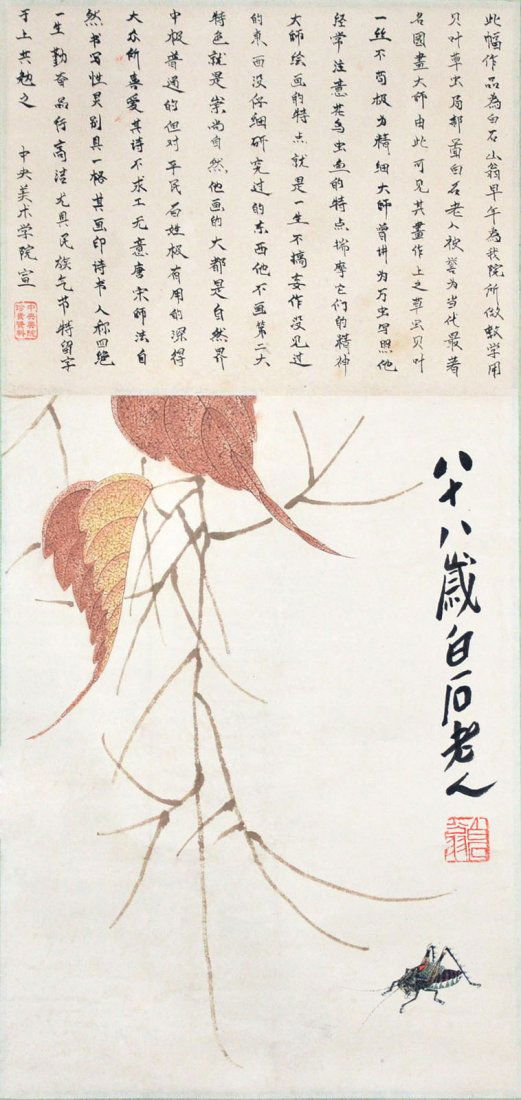 此幅作品為白石山翁早年為我院所做教学用
贝叶草虫局部画白石老人被誉为当代最著
名國畫大师由此可见其畫作上之草虫贝叶
一丝不苟极为精细大师曾讲为万虫写照他
经常注意花鸟虫鱼的特点揣摩它们的精神
大师绘画的特点就是一生不搞妄作没见过
的东西没仔细研究过的东西他不画第二大
特色就是崇尚自然他画的大都是自然界
中极普通的但对平民百姓极有用的深得
大众所喜爱其诗不求工无意唐宋师法自
然书写性灵别具一格其画印诗书人称四绝
一生勤奋品行高洁尤具民族气节特留字
于上共勉之 中央美术学院宣
中央美院
珍貴資料
八十八歲白石老人
白石翁